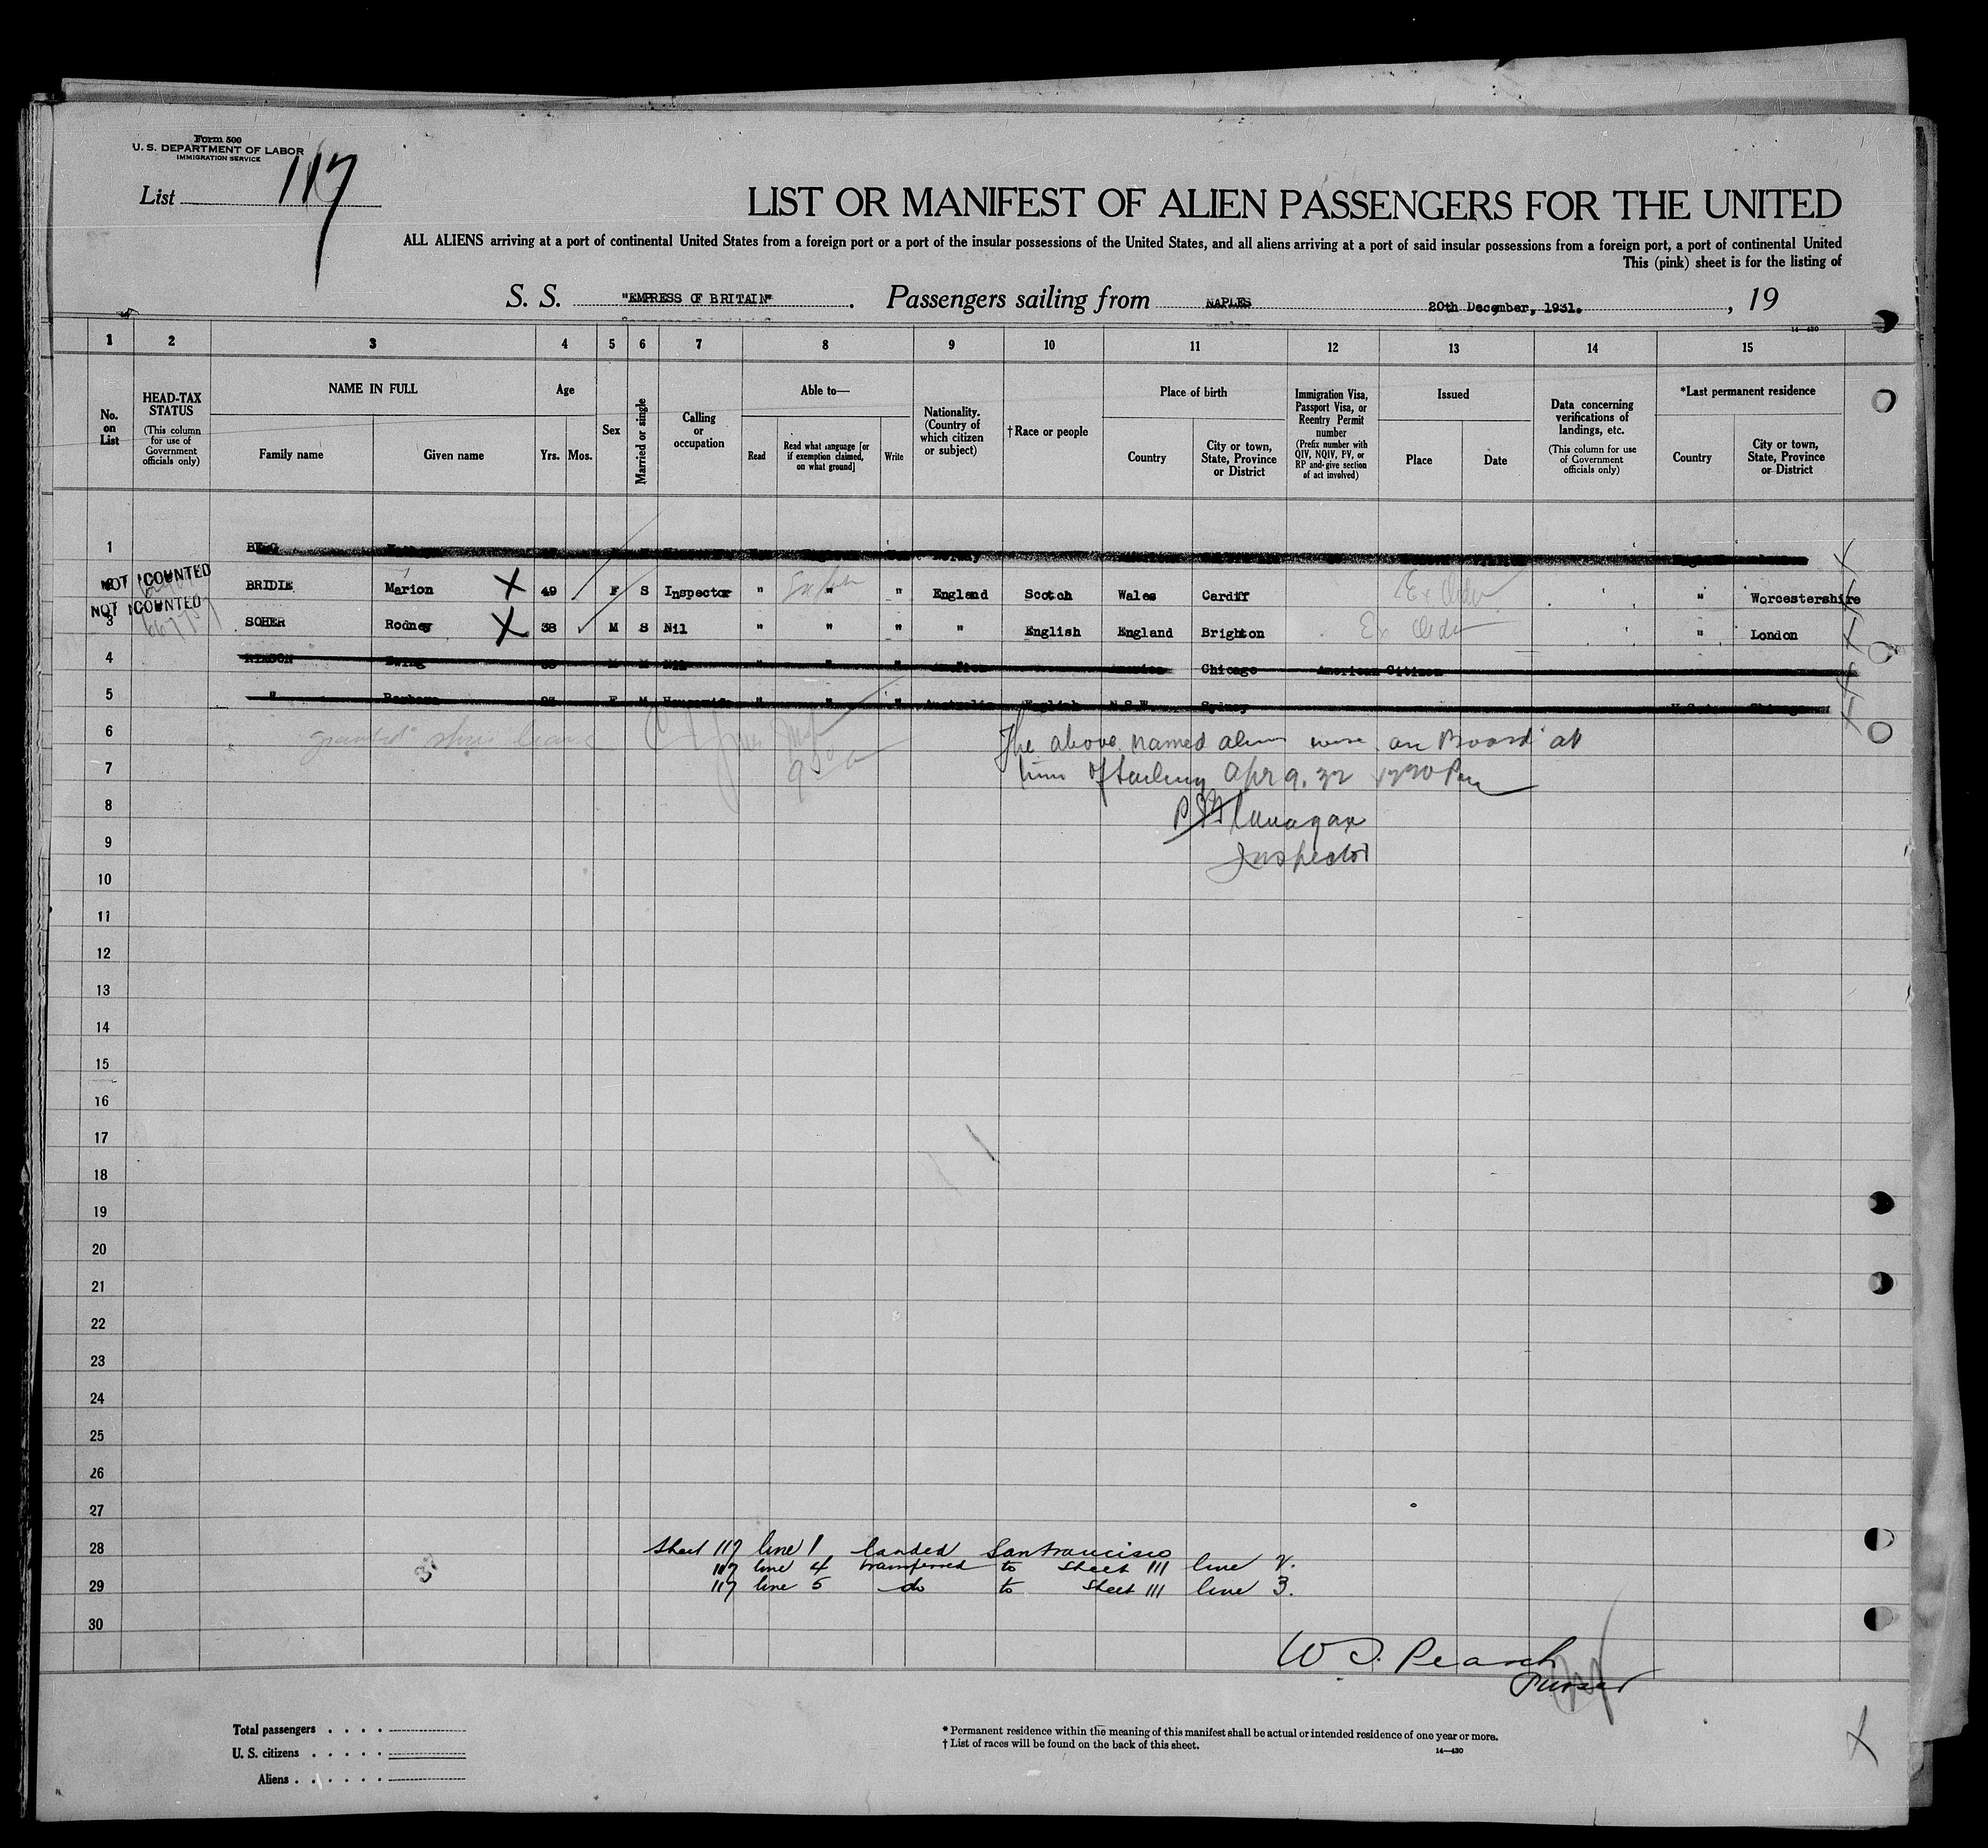 Form 500
U. S. DEPARTMENT OF LABOR
IMMIGRATION SERVICE
List 117
LIST OR MANIFEST OF ALIEN PASSENGERS FOR THE UNITED
ALL ALIENS arriving at a port of continental United States from a foreign port or a port of the insular possessions of the United States, and all aliens arriving at a port of said insular possessions from a foreign port, a port of continental United
This (pink) sheet is for the listing of
S. S. "EMPRESS OF BRITAIN". Passengers sailing from NAPLES 20th December, 1931. , 19
14-430
1 2 3 4 5 6 7 8 9 10 11 12 13 14 15
No. on List
HEAD-TAX STATUS
(This column for use of Government officials only)
NAME IN FULL
Family name
Given name
Age
Yrs.
Mos.
Sex
Married or single
Calling or occupation
Able to—
Read
Read what language [or if exemption claimed, on what ground]
Write
Nationality. (Country of which citizen or subject)
†Race or people
Place of birth
Country
City or town, State, Province or District
Immigration Visa, Passport Visa, or Reentry Permit number
(Prefix number with QIV, NQIV, PV, or RP and give section of act involved)
Issued
Place
Date
Data concerning verifications of landings, etc.
(This column for use of Government officials only)
*Last permanent residence
Country
City or town, State, Province or District
1
NOT COUNTED
2 BRIDIE Marion X 49 F S Inspector " " " England Scotch Wales Cardiff Ex " Worcestershire
NOT COUNTED
3 SOHER Rodney X 38 M S Nil " " " " English England Brighton Ex " London
4 Ewing M M Nil " " " Chicago American Citizen
5 " Barbara F M " " " Australia English N.S.W. Sydney Chicago
6 granted shore leave The above named aliens were on Board at
7 time of sailing Apr 9. 32 Pm
8 Flanagan
9 Inspector
10
11
12
13
14
15
16
17
18
19
20
21
22
23
24
25
26
27
28 Sheet 117 line 1 landed San Francisco
117 line 4 transferred to Sheet 111 line 2.
29 117 line 5 do to Sheet 111 line 3.
30
Purser
Total passengers . . . .
U. S. citizens . . . . .
Aliens . . . . . .
* Permanent residence within the meaning of this manifest shall be actual or intended residence of one year or more.
† List of races will be found on the back of this sheet.
14—430